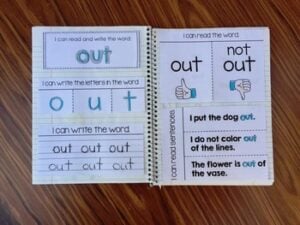 I can read and write the word:
out
I can write the letters in the word.
o u t
I can write the word.
out out out
out out out
I can read the word.
out
not
out
I can read sentences.
I put the dog out.
I do not color out
of the lines.
The flower is out of
the vase.